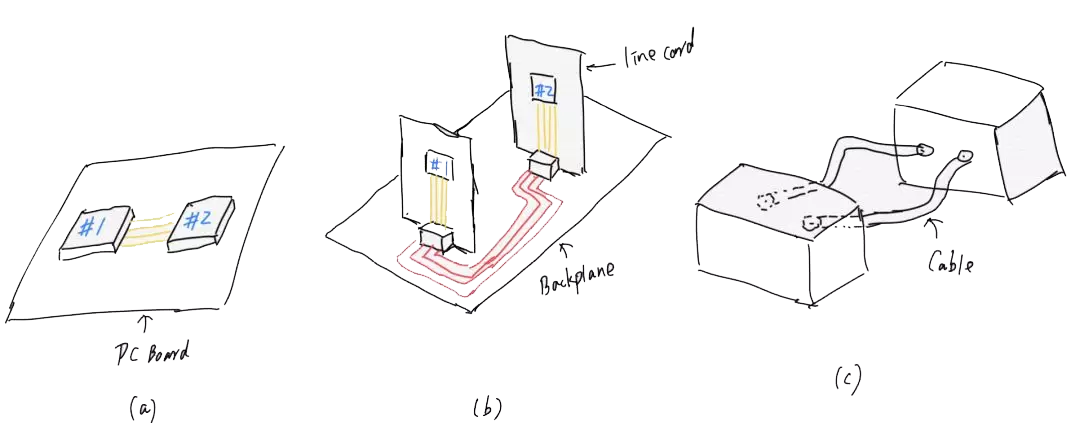 #1
#2
PC Board
(a)
line card
#2
#1
Backplane
(b)
Cable
(c)